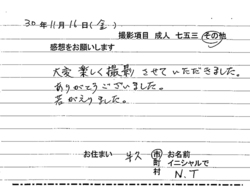 30年11月16日(金)
撮影項目 成人 七五三 その他
感想をお願いします
大変楽しく撮影させていただきました。
ありがとうございました。
若がえりました。
お住まい 牛久 市 町 村 お名前 イニシャルで N.T